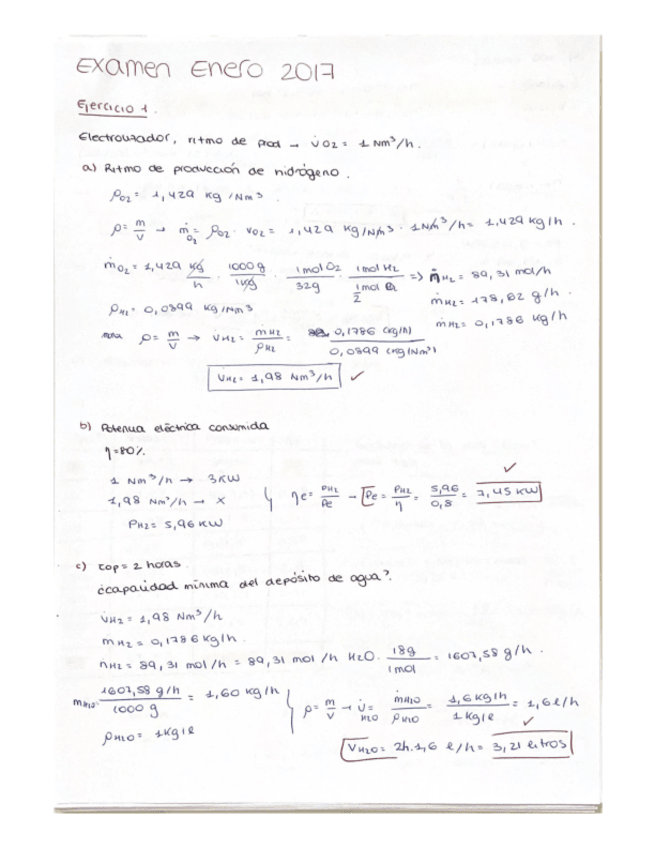 Examen Enero 2017
Ejercicio 1.
Electrolizador, ritmo de prod → V̇O2 = 1 Nm³/h.
a) Ritmo de producción de hidrógeno.
ρO2 = 1,429 kg/Nm³
ρ = m/V → ṁO2 = ρO2 · VO2 = 1,429 kg/Nm³ · 1 Nm³/h = 1,429 kg/h.
ṁO2 = 1,429 kg/h · 1000 g/1kg · 1 mol O2/32g · 1 mol H2/(1/2 mol O2) => ṅH2 = 89,31 mol/h
ṁH2 = 178,62 g/h.
ρH2 = 0,0899 kg/Nm³
ṁH2 = 0,1786 kg/h
ρ = m/V → V̇H2 = ṁH2/ρH2 = 0,1786 (kg/h)/0,0899 (kg/Nm³)
V̇H2 = 1,98 Nm³/h ✓
b) Potencia eléctrica consumida
η = 80%
1 Nm³/h → 3KW
1,98 Nm³/h → x
PH2 = 5,96 KW
ηe = PH2/Pe → Pe = PH2/η = 5,96/0,8 = 7,45 KW ✓
c) top = 2 horas.
¿capacidad mínima del depósito de agua?
V̇H2 = 1,98 Nm³/h
ṁH2 = 0,1786 kg/h.
ṅH2 = 89,31 mol/h = 89,31 mol/h H2O · 18g/1mol = 1607,58 g/h.
ṁH2O = 1607,58 g/h/1000 g = 1,60 kg/h
ρH2O = 1kg/l
ρ = m/V → V̇H2O = ṁH2O/ρH2O = 1,6 kg/h/1 kg/l = 1,6 l/h
✓
VH2O = 2h · 1,6 l/h = 3,21 litros